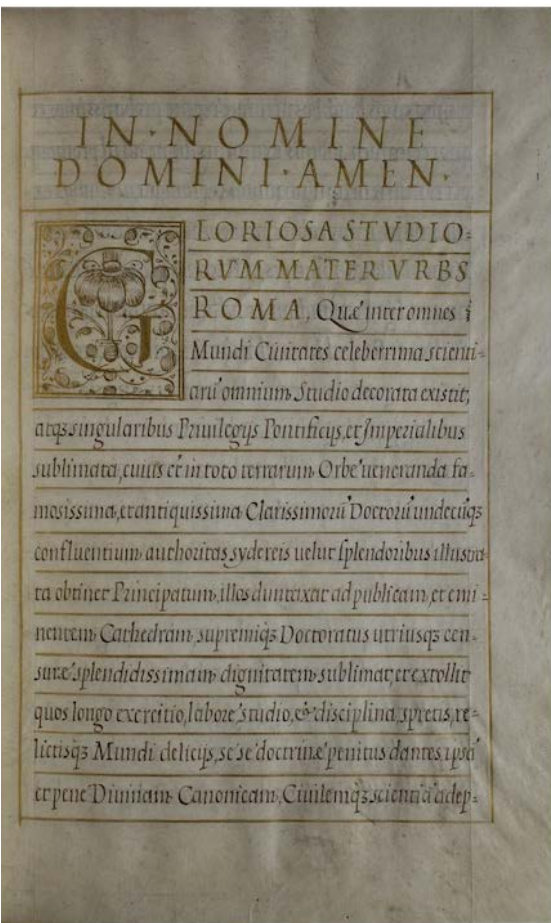 IN·NOMINE
DOMINI·AMEN·
GLORIOSA STVDIO=
RVM MATER VRBS
ROMA, Quæ inter omnes
Mundi Ciuitates celeberrima scienti=
arū omnium Studio decorata existit;
atqꝫ singularibus Priuilegijs Pontificijs, et Imperialibus
sublimata, cuius et in toto terrarum Orbe ueneranda fa=
mosissima, et antiquissima Clarissimorū Doctorū undecūqꝫ
confluentium authoritas sydereis uelut splendoribus illustra=
ta obtinet Principatum, illos duntaxat ad publicam, et emi=
nentem Cathedram, supremiqꝫ Doctoratus utriusqꝫ cen=
suræ splendidissimam dignitatem sublimat, et extollit
quos longo exercitio, labore studio, & disciplina, spretis, re=
lictisqꝫ Mundi delicijs, se se doctrinæ penitus dantes, ipsā
et pene Diuinam Canonicam, Ciuilemqꝫ scientiā adep=